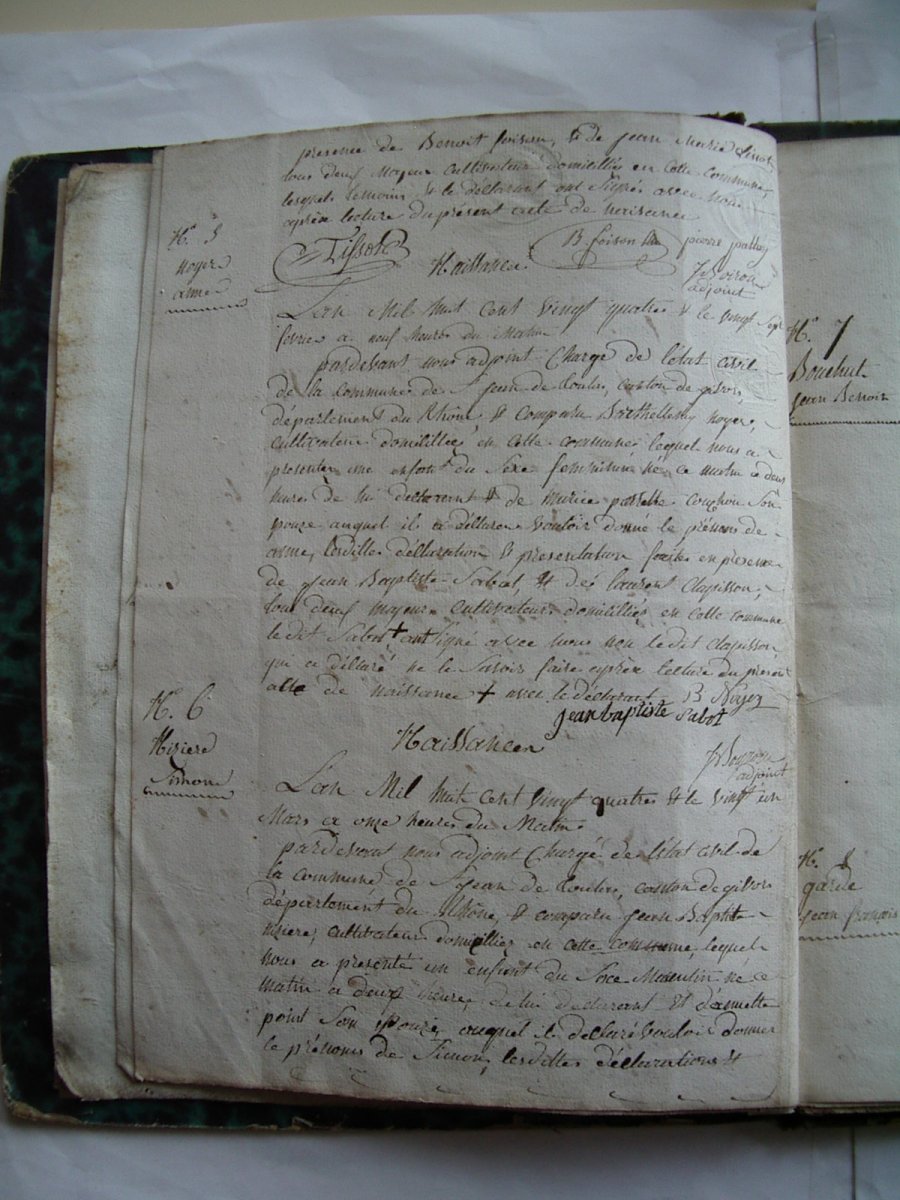 presence de Benoit foison, & de jean Marie
tous deux Majeur Cultivateur domicilliés en cette commune,
lesquels temoins & le déclarant ont signés avec nous
après lecture du présent acte de naissance
Tissot B foison pierre
Naissance
adjoint
N.º 5
noyer
anne
L'an Mil huit cent vingt quatres & le vingt Sept
fevrier a neuf heures du Matin
pardevant nous adjoint Chargé de l'état civil
de la commune de St jean de toulas, canton de givors,
département du Rhône, & comparu Barthellemy noyer,
cultivateur domicillié, en cette commune, lequel nous a
presenter une enfant du Sexe feminin né ce matin a deux
hures de lui declarent & de couchou Son
pouze auquel il a déllaré vouloir donné le prénom de
anne, lesdittes déllaration & presentation faite en presence
de Jean Baptiste Sabot, & de laurent Clapisson,
tous deux majeur Cultivateur domicilliés en cette commune
le dit Sabot + ont signé avec nous non le dit Clapisson
qui a déllaré ne le Savoir faire après lecture du present
acte de naissance + avec le déclarant B Noyer
jean baptiste Sabot
adjoint
N. 6
Miziere
Simon
Naissance
L'an Mil huit cent vingt quatres & le vingt un
Mars a onze heures du Matin
pardevant nous adjoint Chargé de l'état civil de
la commune de St jean de toulas, canton de givors
département du Rhône, & comparu jean Baptiste
miziere, cultivateur domicillier en cette commune, lequel
nous a presenté un enfant du Sexe Masculin né ce
matin a deux heure, de lui declarant &
point Son pouze, auquel il dellaré vouloir donner
le prénoms de Simon, lesdittes déclarations &
N.º 7
Bouchut
jean Benoit
N. 8
garde
jean françois